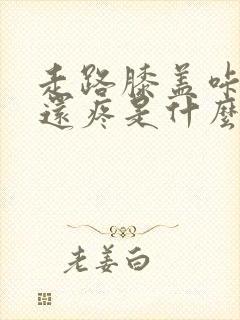 走路膝盖咔
还疼是什麼
老姜白